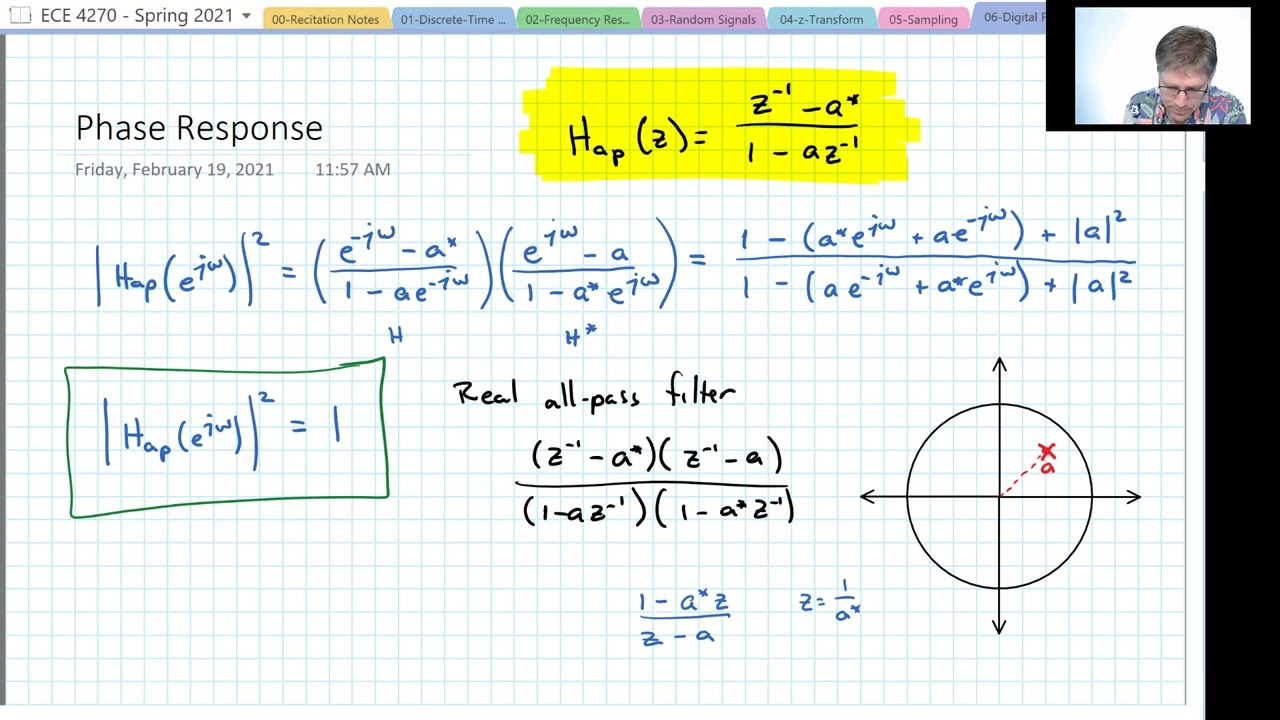 ECE 4270 - Spring 2021
00-Recitation Notes
01-Discrete-Time ...
02-Frequency Res...
03-Random Signals
04-z-Transform
05-Sampling
06-Digital F
Phase Response
Friday, February 19, 2021 11:57 AM
H_ap(z) = (z^-1 - a*) / (1 - az^-1)
|H_ap(e^jω)|^2 = ((e^-jω - a*) / (1 - ae^-jω)) ((e^jω - a) / (1 - a* e^jω)) = (1 - (a*e^jω + ae^-jω) + |a|^2) / (1 - (ae^-jω + a*e^jω) + |a|^2)
H H*
|H_ap(e^jω)|^2 = 1
Real all-pass filter
(z^-1 - a*)(z^-1 - a) / (1-az^-1)(1 - a*z^-1)
a
(1 - a*z) / (z - a) z = 1/a*